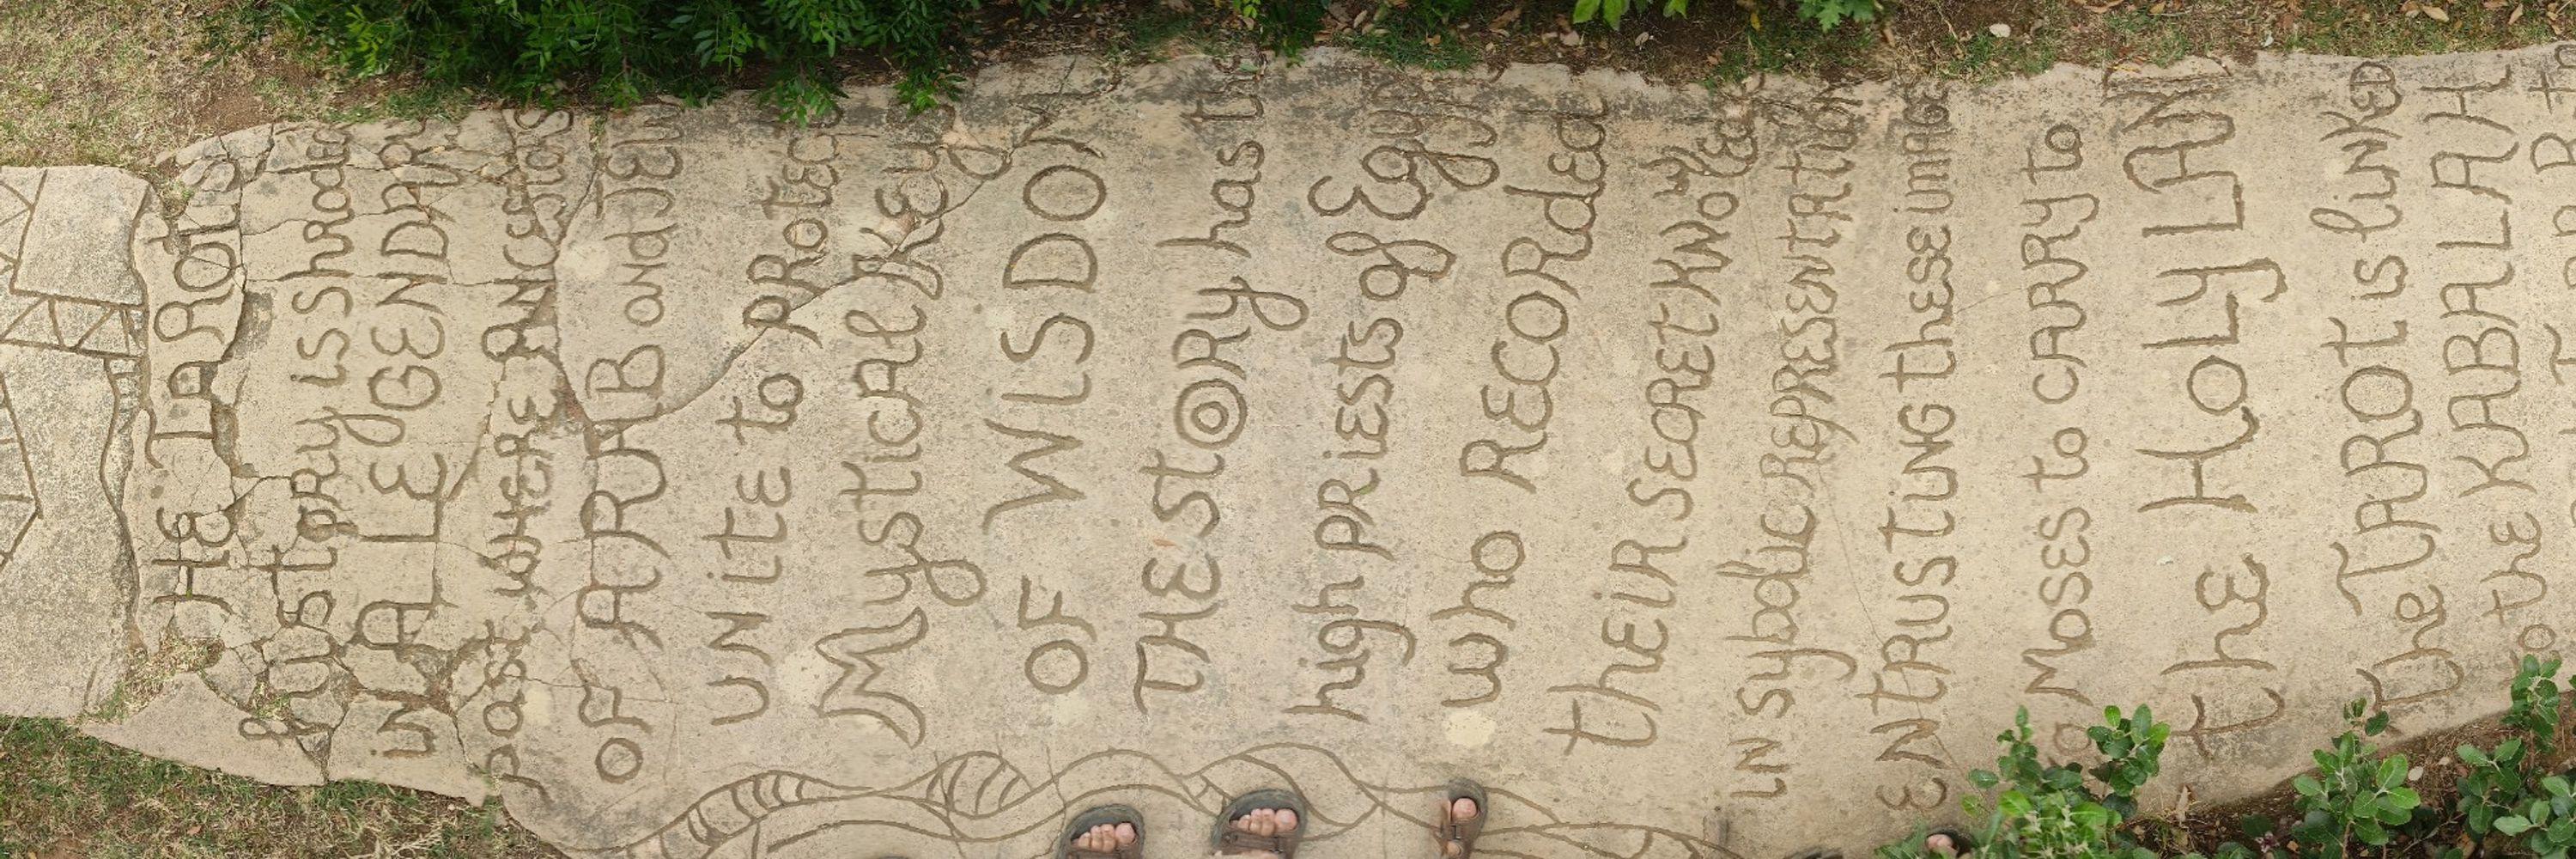 THE TAROTS
history is shroded
in A LEGENDARY
past WHERE ANCESTIAS
OF ARUAB and JEW
UNITE to PROtEct
Mystical Key
OF WISDOM
THE StORY has
high PRIEsts of Egyp
who RECORded
thEIR SEARET KNOWlEd
IN SybolicREPRESENtAtION
ENTRUSTING thESE IMAGE
MOSES to CARRY to
the HoLY LAN
the TAROt is linKED
to the KABALLAH